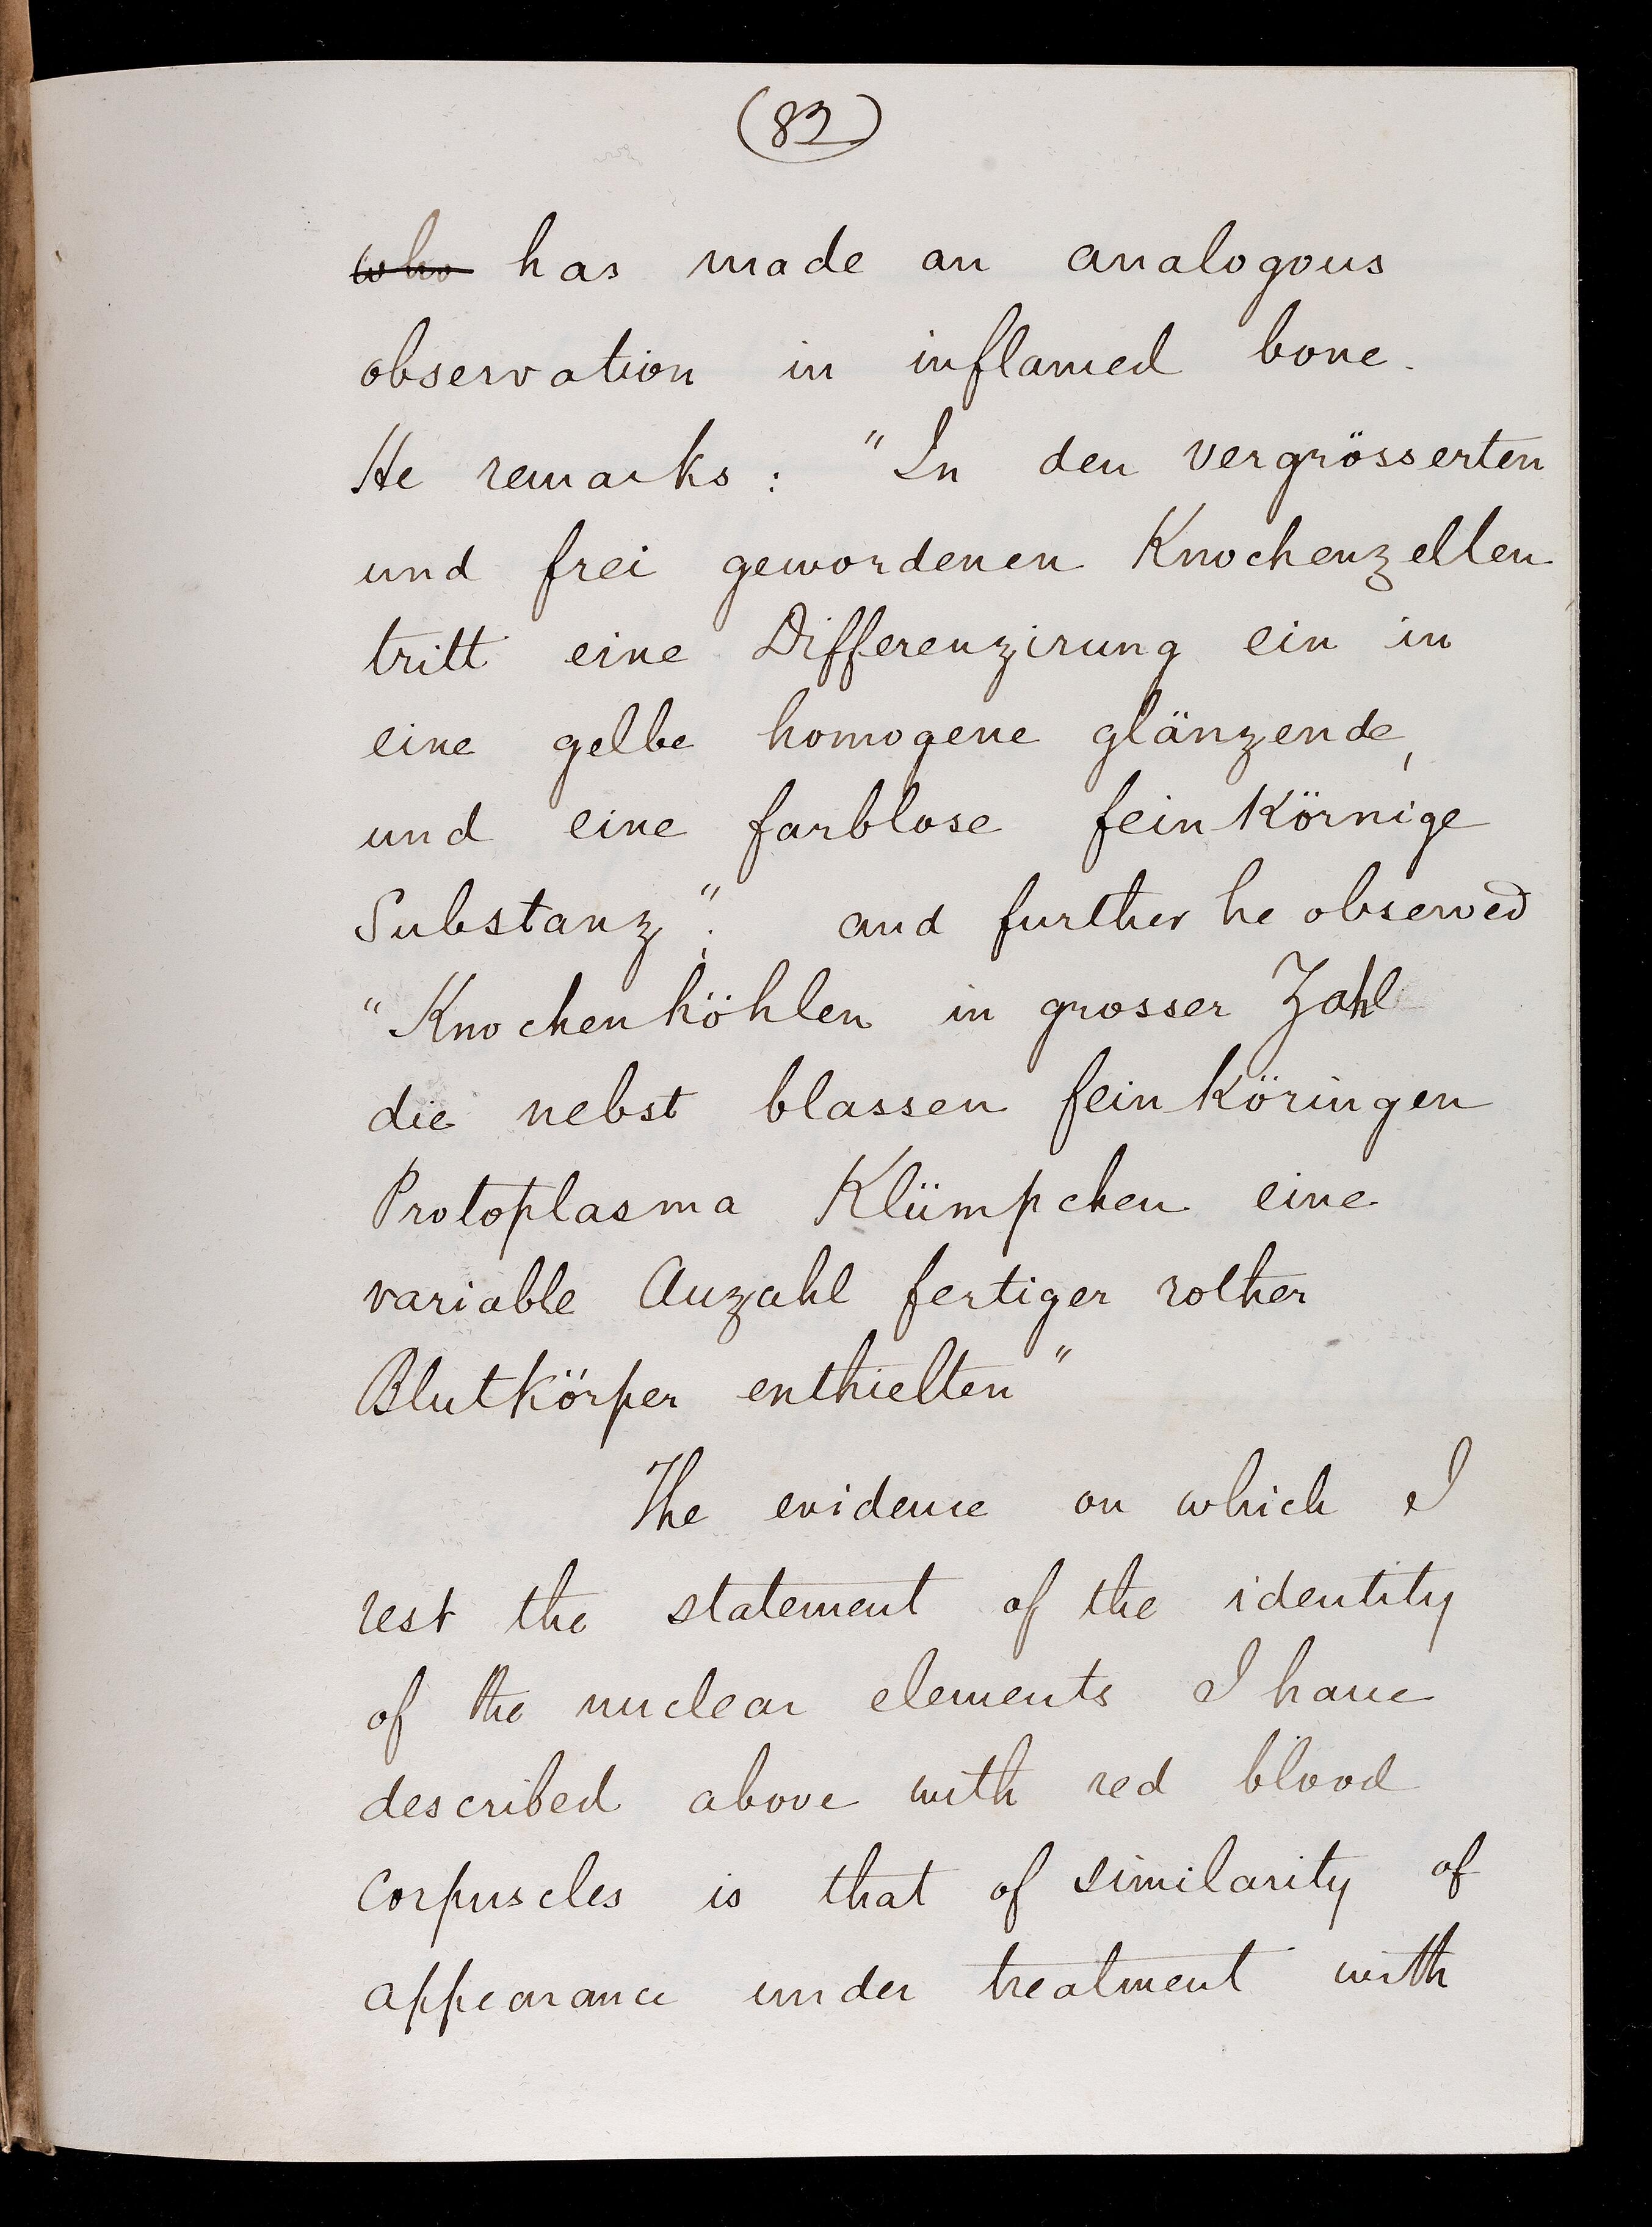 (82)
who has made an analogous
observation in inflamed bone.
He remarks: "In den vergrösserten
und frei gewordenen Knochenzellen
tritt eine Differenzirung ein in
eine gelbe homogene glänzende,
und eine farblose feinkörnige
Substanz"; and further he observed
"Knochenhöhlen in grosser Zahl
die nebst blassen feinköringen
Protoplasma Klümpchen eine
variable Anzahl fertiger rother
Blutkörper enthielten"
The evidence on which I
rest the statement of the identity
of the nuclear elements I have
described above with red blood
corpuscles is that of similarity of
appearance under treatment with